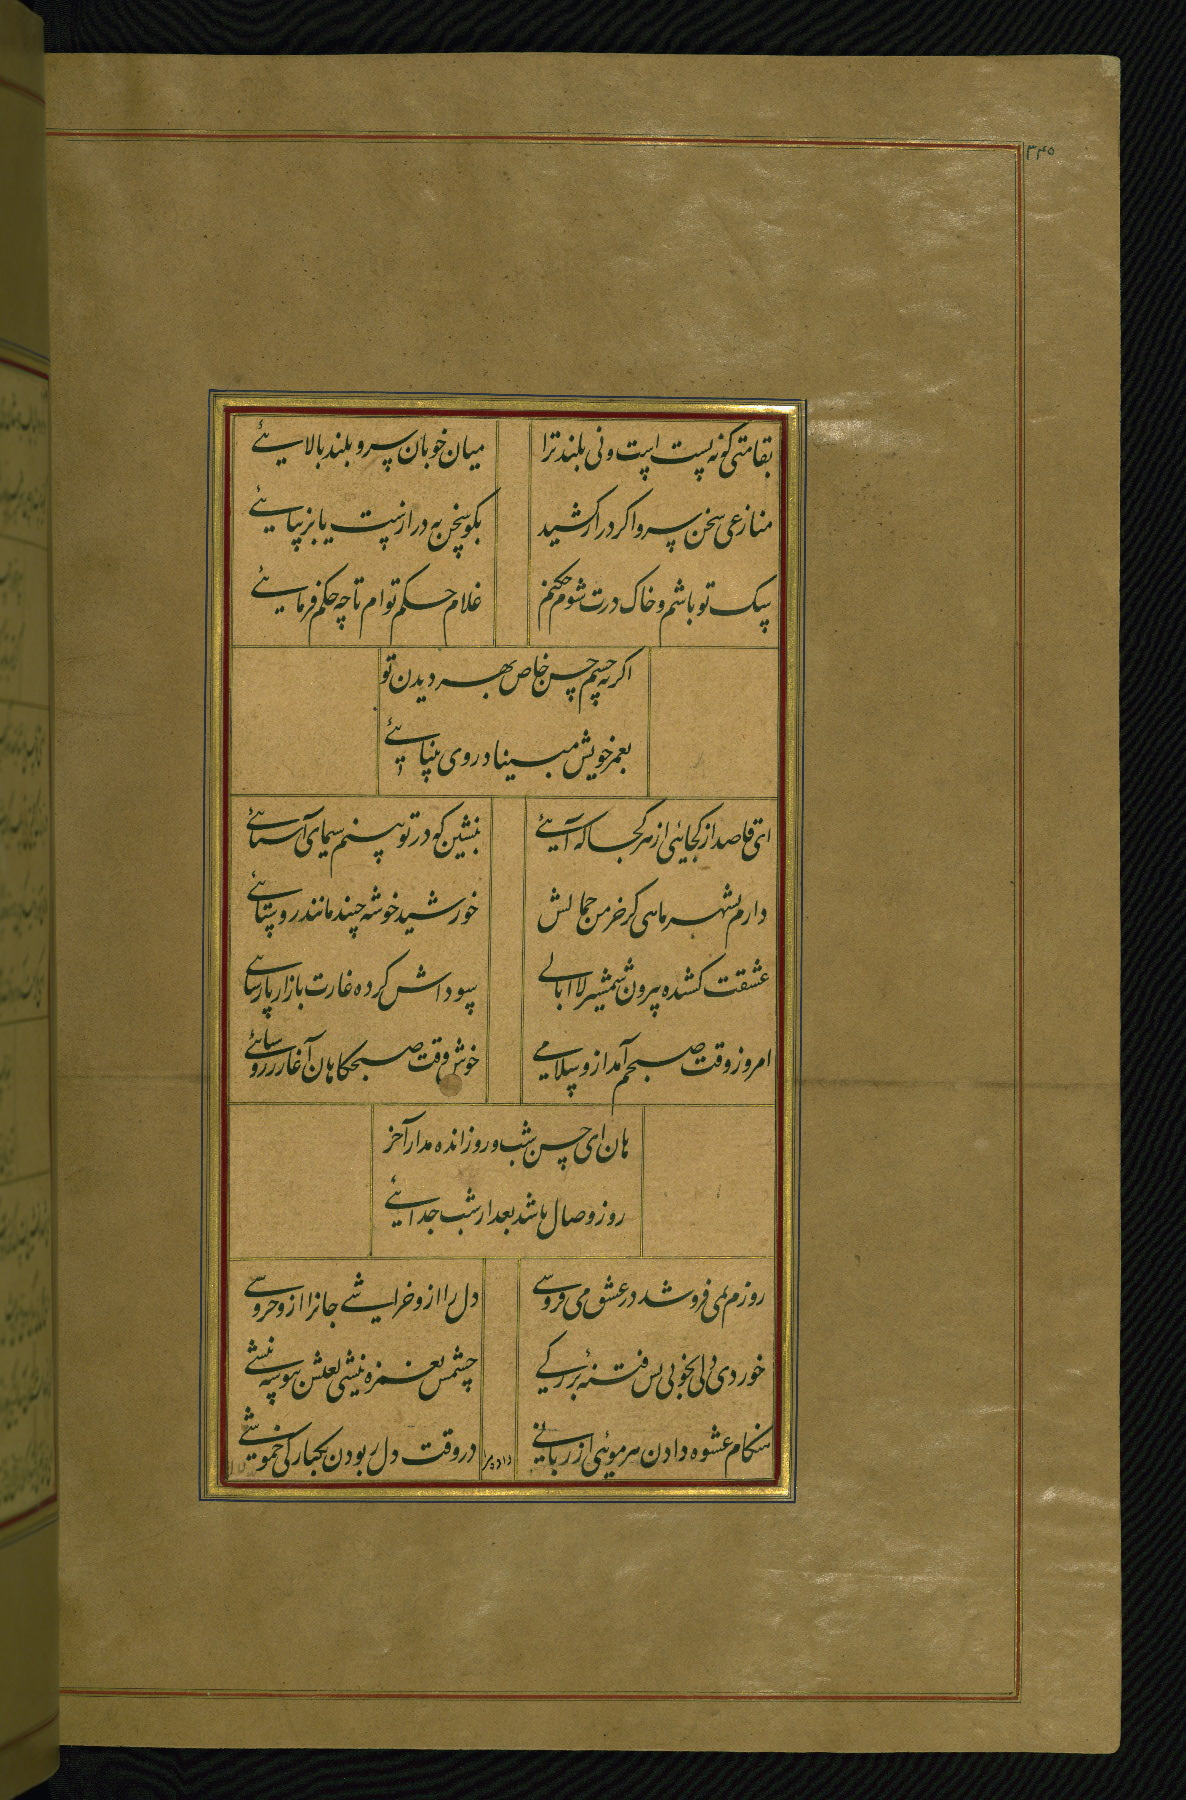 ۳۴۵
بقامتی که نه پست است و نی بلند ترا
میان خوبان سرو بلند بالایئے
منازعی سخن سرو اکر دراز کشید
بکو سخن به درازیست یا بزیبایئے
سک تو باشم و خاک درت شوم حکنم
غلام حکم توام تا چه حکم فرمایئے
اکر نه چسم حسن خاص بهر دیدن تو
بعمر خویش مبیناد روی بینایئے
ای قاصد از کجایی از هر کجا که آیئے
بنشین که در تو بینم سیمای آشنایئے
دارم بشهر ماهی کز خرمن جمالش
خورشید خوشه چیند مانند روستایئے
عشقت کشده بیرون شمشیر لاابالے
سوداش کرده غارت بازار پارسایے
امروز وقت صبحم آمد ازو سلامے
خوش وقت صبحکاهان آغاز رروسایئے
هان ای حسن شب و روز انده مدار آخر
روز وصال باشد بعد از شب جدایئے
روزم می فروشد در عشق می فروسے
دل را ازو خراشے جانرا ازو خروسے
خوردی ولی بخوبی بس فتنهٔ بزرکے
چشمش بغمزه نیشی لعلش ببوسه نیشے
هنکام عشوه دادن هر موئی از زبانے
در وقت دل ربودن یکبارکی خموشے
داده مرا